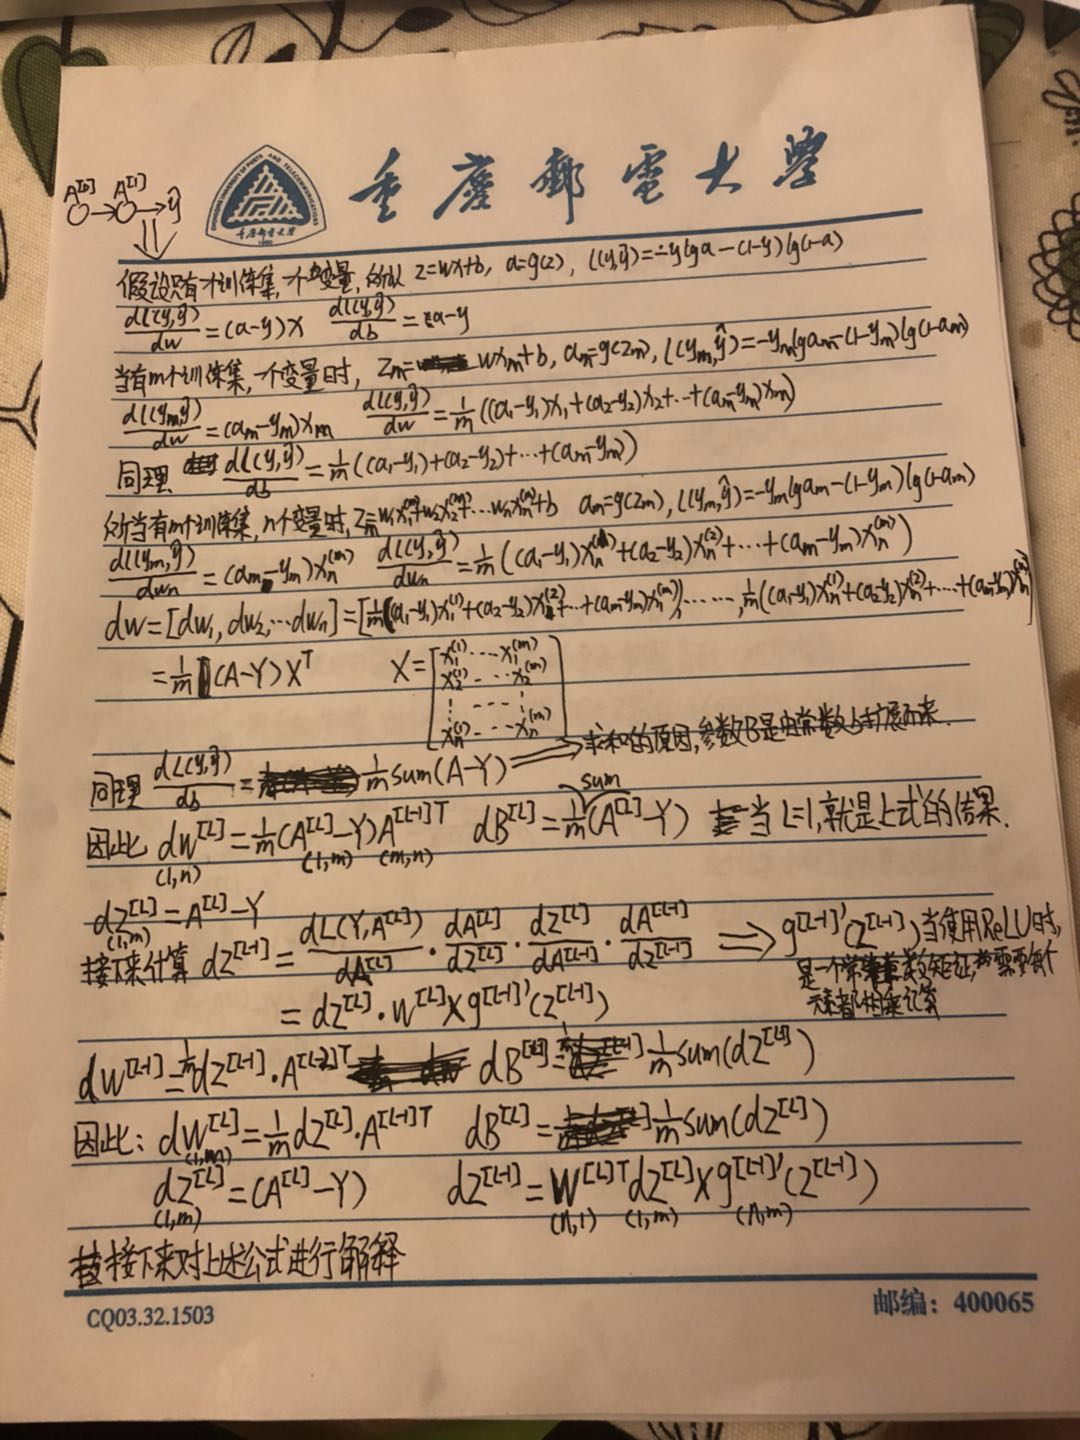 重慶郵電大學
A^[0] → A^[1] → ŷ
假设只有1个训练集,一个变量,所以 z=wx+b, a=g(z), L(y,ŷ)=-ylga-(1-y)lg(1-a)
dL(y,ŷ)/dw=(a-y)x dL(y,ŷ)/db=a-y
当有m个训练集,一个变量时, Zm=wxm+b, am=g(Zm), L(ym,ŷ)=-ymlgam-(1-ym)lg(1-am)
dL(ym,ŷ)/dw=(am-ym)xm dL(y,ŷ)/dw=1/m((a1-y1)x1+(a2-y2)x2+…+(am-ym)xm)
同理 dL(y,ŷ)/db=1/m((a1-y1)+(a2-y2)+…+(am-ym))
所当有m个训练集,n个变量时,Zm=w1x1^(m)+w2x2^(m)+…wnxn^(m)+b am=g(Zm), L(ym,ŷ)=-ymlgam-(1-ym)lg(1-am)
dL(ym,ŷ)/dwn=(am-ym)xn^(m) dL(y,ŷ)/dwn=1/m((a1-y1)xn^(1)+(a2-y2)xn^(2)+…+(am-ym)xn^(m))
dw=[dw1,dw2,…dwn]=[1/m((a1-y1)x1^(1)+(a2-y2)x1^(2)+…+(am-ym)x1^(m)),……,1/m((a1-y1)xn^(1)+(a2-y2)xn^(2)+…+(am-ym)xn^(m))]
=1/m(A-Y)X^T X=[x1^(1)…x1^(m)
x2^(1)-…x2^(m)
⋮ … ⋮
xn^(1)-…xn^(m)]
同理 dL(y,ŷ)/db=1/m sum(A-Y) ⇒ 求和的原因,参数B是由常数b扩展而来.
因此 dw^[L]=1/m(A^[L]-Y)A^[L-1]T dB^[L]=1/m sum(A^[L]-Y) 当L=1,就是上式的结果.
(1,n) (1,m) (m,n)
dZ^[L]=A^[L]-Y
(1,m)
接下来计算 dZ^[L-1]=dL(Y,A^[L])/dA^[L]·dA^[L]/dZ^[L]·dZ^[L]/dA^[L-1]·dA^[L-1]/dZ^[L-1] ⇒ g^[L-1]'(Z^[L-1]),当使用ReLU时,
是一个常数矩阵,需要每个
元素都相乘
=dZ^[L]·W^[L]×g^[L-1]'(Z^[L-1])
dW^[L-1]=1/m dZ^[L-1]·A^[L-2]T dB^[L-1]=1/m sum(dZ^[L-1])
因此: dW^[L]=1/m dZ^[L]·A^[L-1]T dB^[L]=1/m sum(dZ^[L])
dZ^[L]=(A^[L]-Y) dZ^[L-1]=W^[L]T dZ^[L]×g^[L-1]'(Z^[L-1])
(1,m) (n,1) (1,m) (n,m)
接下来对上述公式进行解释
CQ03.32.1503 邮编:400065